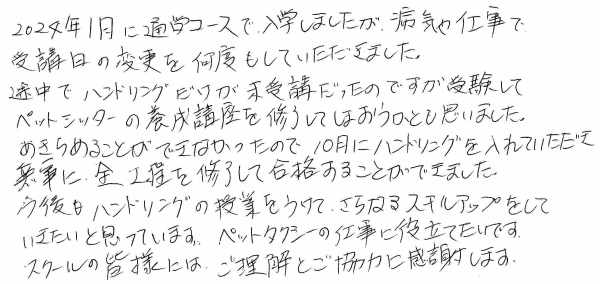 2024年1月に通学コースで入学しましたが、病気や仕事で
受講日の変更を何度もしていただきました。
途中でハンドリングだけが未受講だったのですが受験して
ペットシッターの養成講座を修了してしまおうひとも思いました。
あきらめることができなかったので10月にハンドリングを入れていただき
無事に全工程を修了して合格することができました。
今後もハンドリングの授業をうけて、さらなるスキルアップをして
いきたいと思っています。ペットタクシーの仕事に役立てたいです。
スクールの皆様には、ご理解とご協力に感謝します。